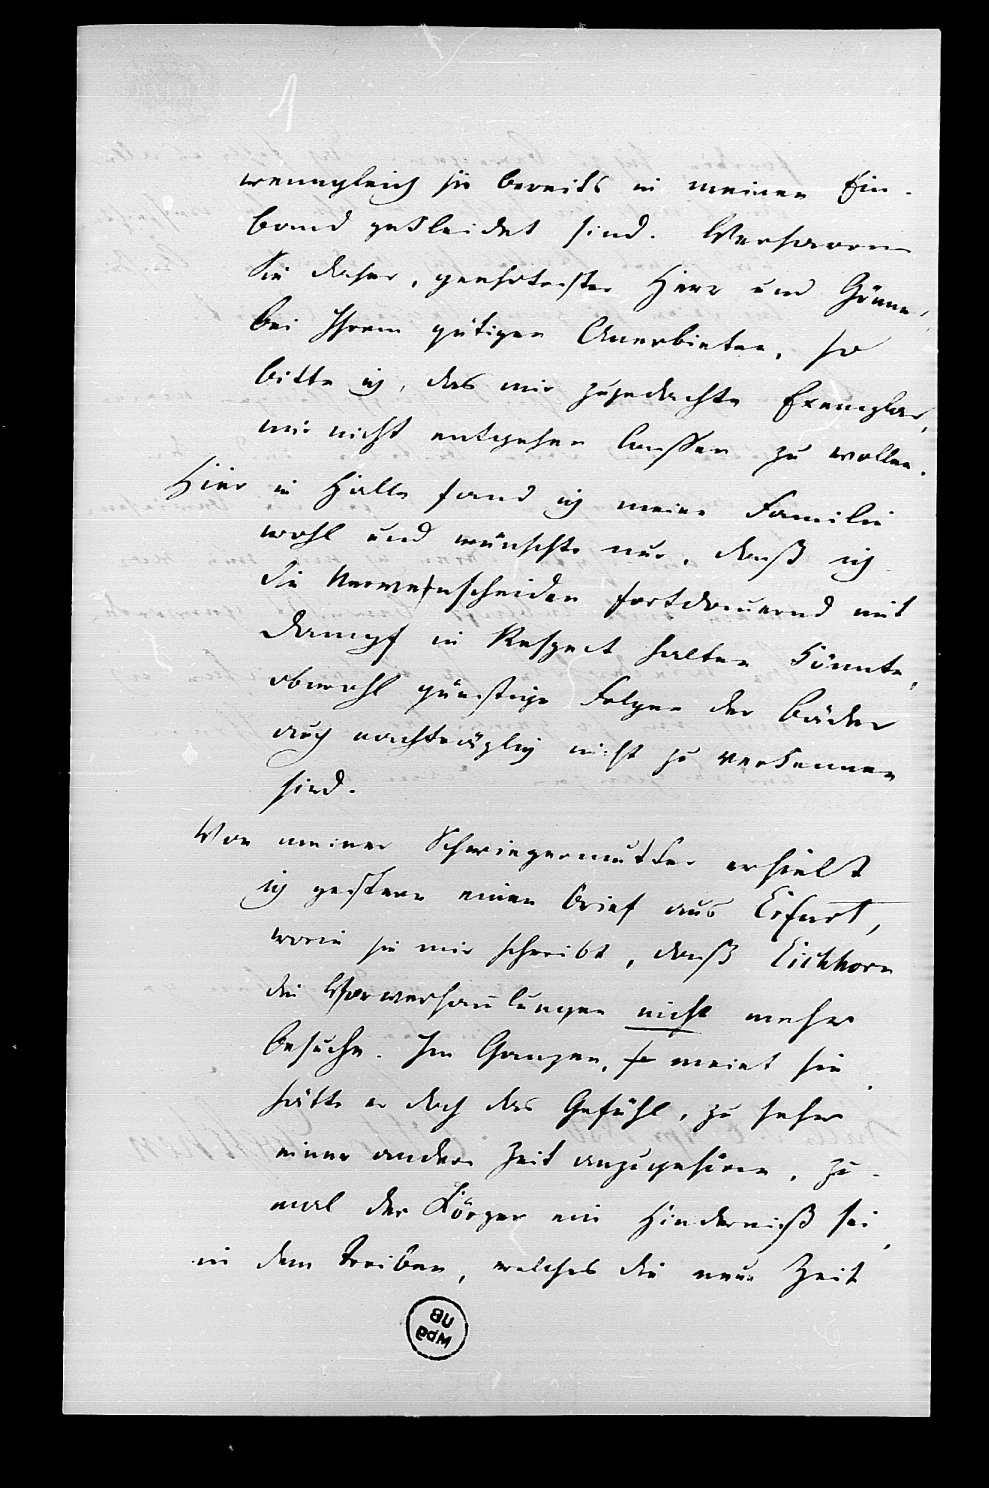 wenngleich sie bereits in meinen Ein-
band gekleidet sind. Verharren
Sie daher, geehrtester Herr und Gönner,
bei Ihrem gütigen Anerbieten, so
bitte ich, das mir zugedachte Exemplar,
mir nicht entgehen lassen zu wollen.
Hier in Halle fand ich meine Familie
wohl und wünschte nur, daß ich
die fortdauernd mit
Dampf in Respect halten könnte,
obwohl günstige Folgen der Bäder
auch nachträglich nicht zu verkennen
sind.
Von meiner Schwiegermutter erhielt
ich gestern einen Brief aus Erfurt,
worin sie mir schreibt, daß Eichhorn
die nicht mehr
besuche. Im Ganzen, so meint sie,
hätte er doch das Gefühl, zu sehr
einer andern Zeit anzugehören, zu-
mal der Körper ein Hinderniß sei,
in dem Treiben, welches die neue Zeit
UB
Wbg